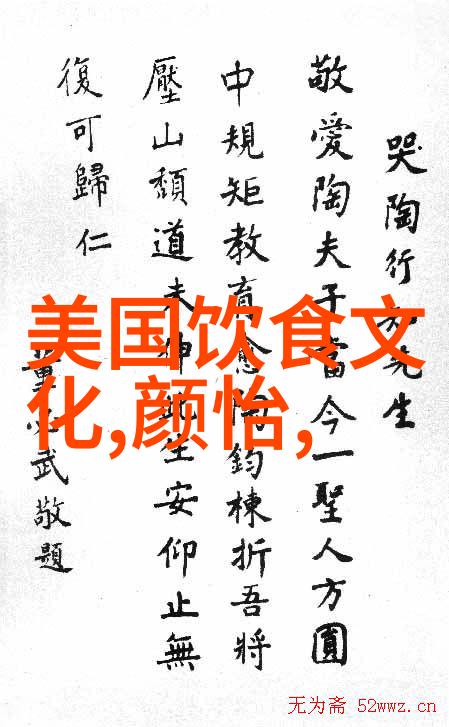 哭陶行知先生
敬愛陶夫子當今一聖人方圓
中規矩教育愈陶鈞棟折吾將
壓山頹道未伸此生安仰止無
復可歸仁
董必武敬題
美国饮食文
化,颜怡,
无为斋 52wwz.cn